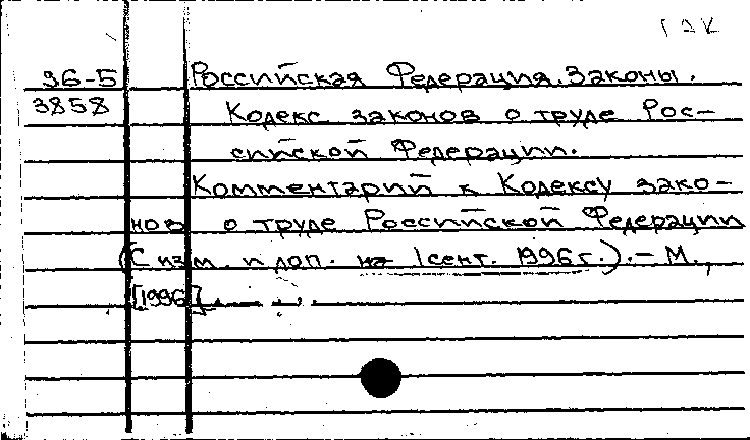 96-5 Российская Федерация. Законы.
3858 Кодекс законов о труде Рос-
сийской Федерации.
Комментарий к Кодексу зако-
нов о труде Российской Федерации
(С изм. и доп. на 1 сент. 1996 г.). - М.,
[1996]